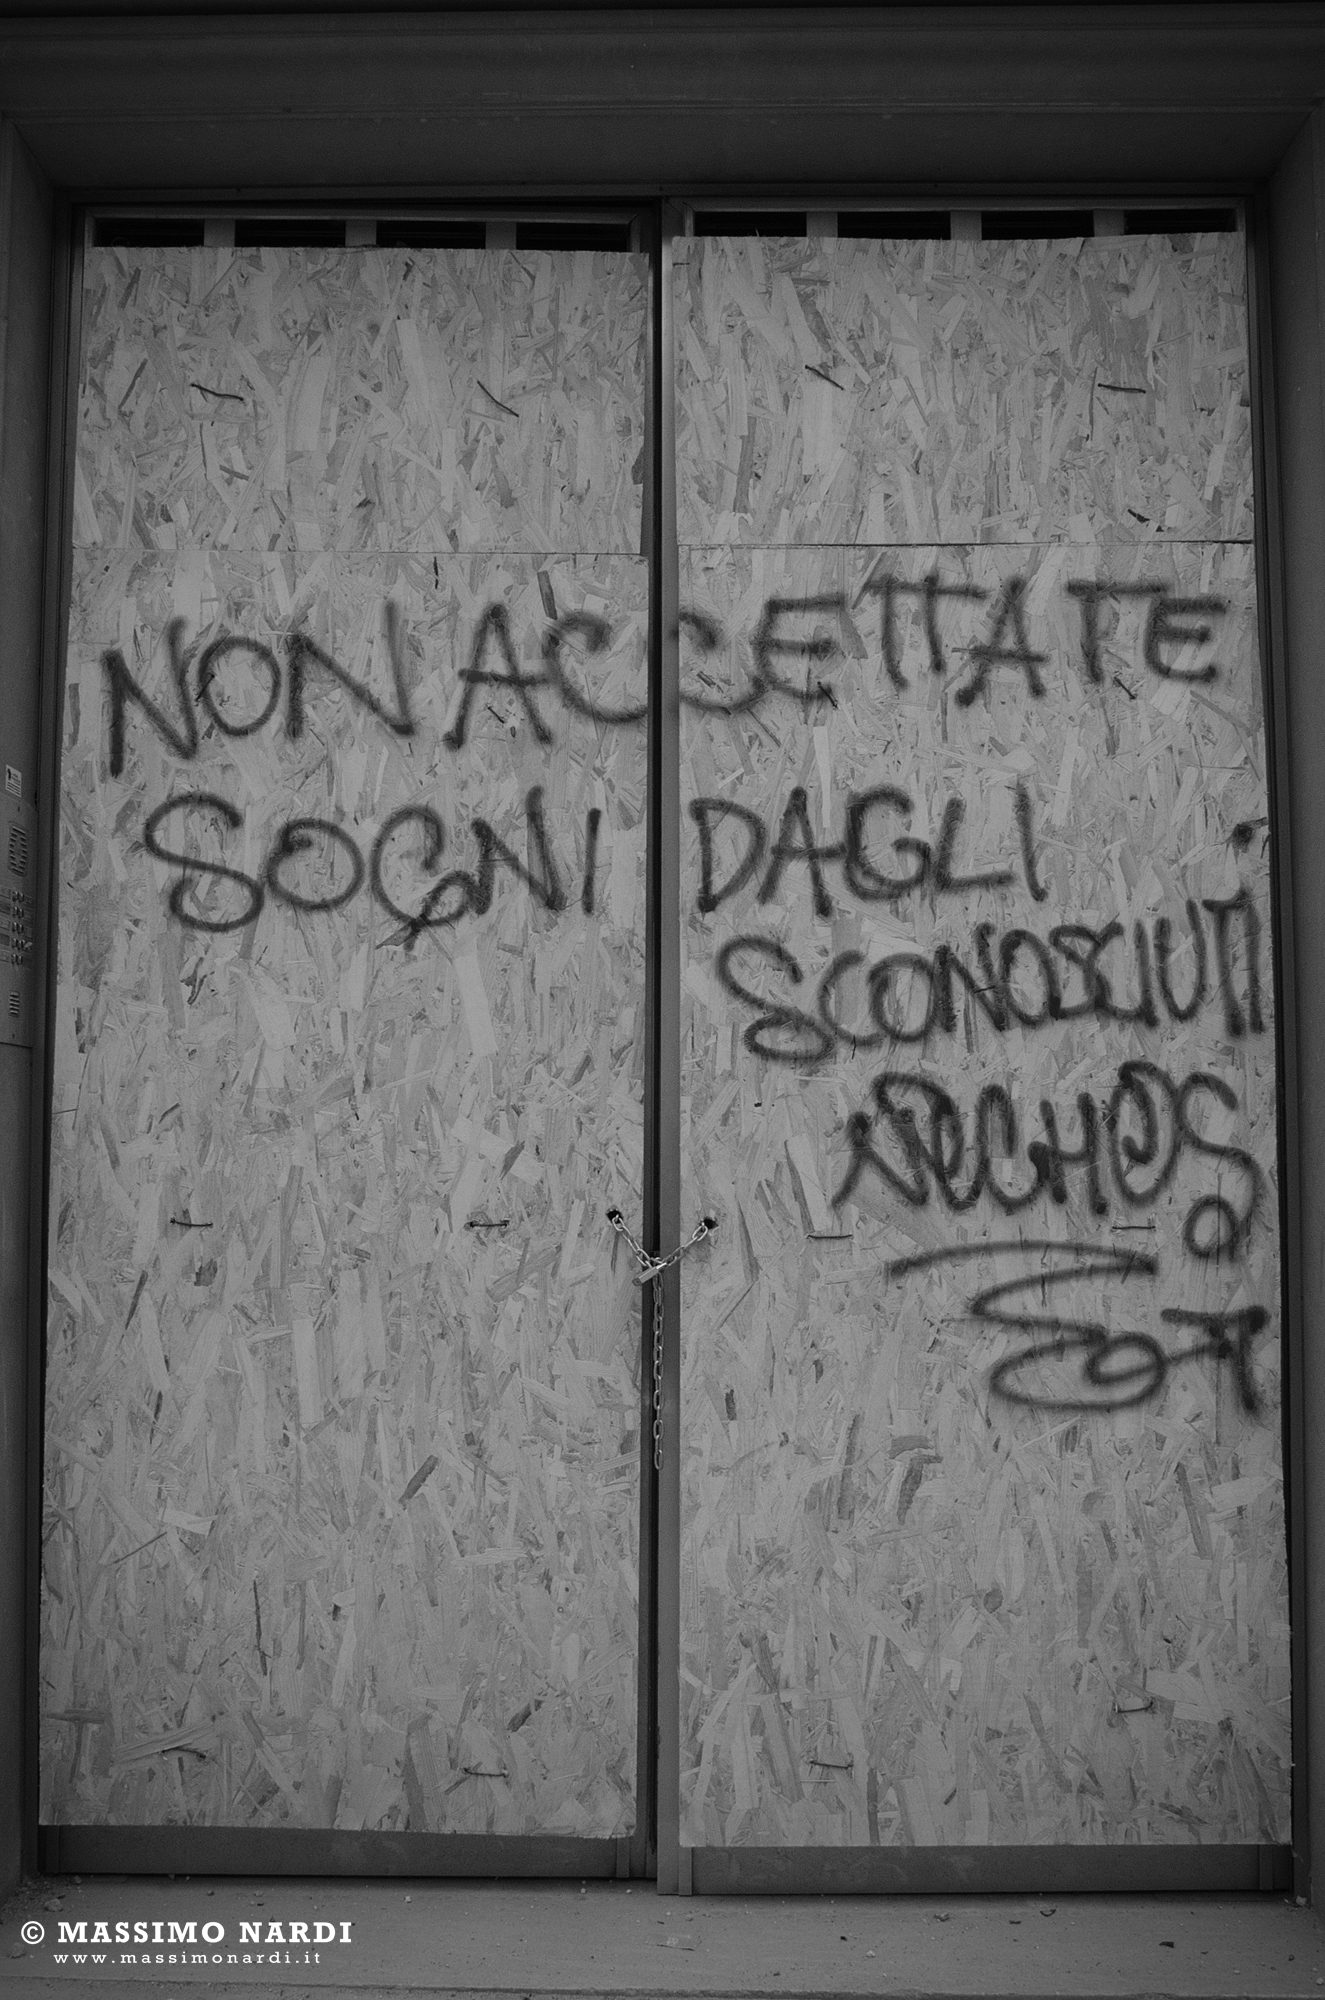 NON ACCETTATE
SOGNI DAGLI
SCONOSCIUTI
© MASSIMO NARDI
www.massimonardi.it